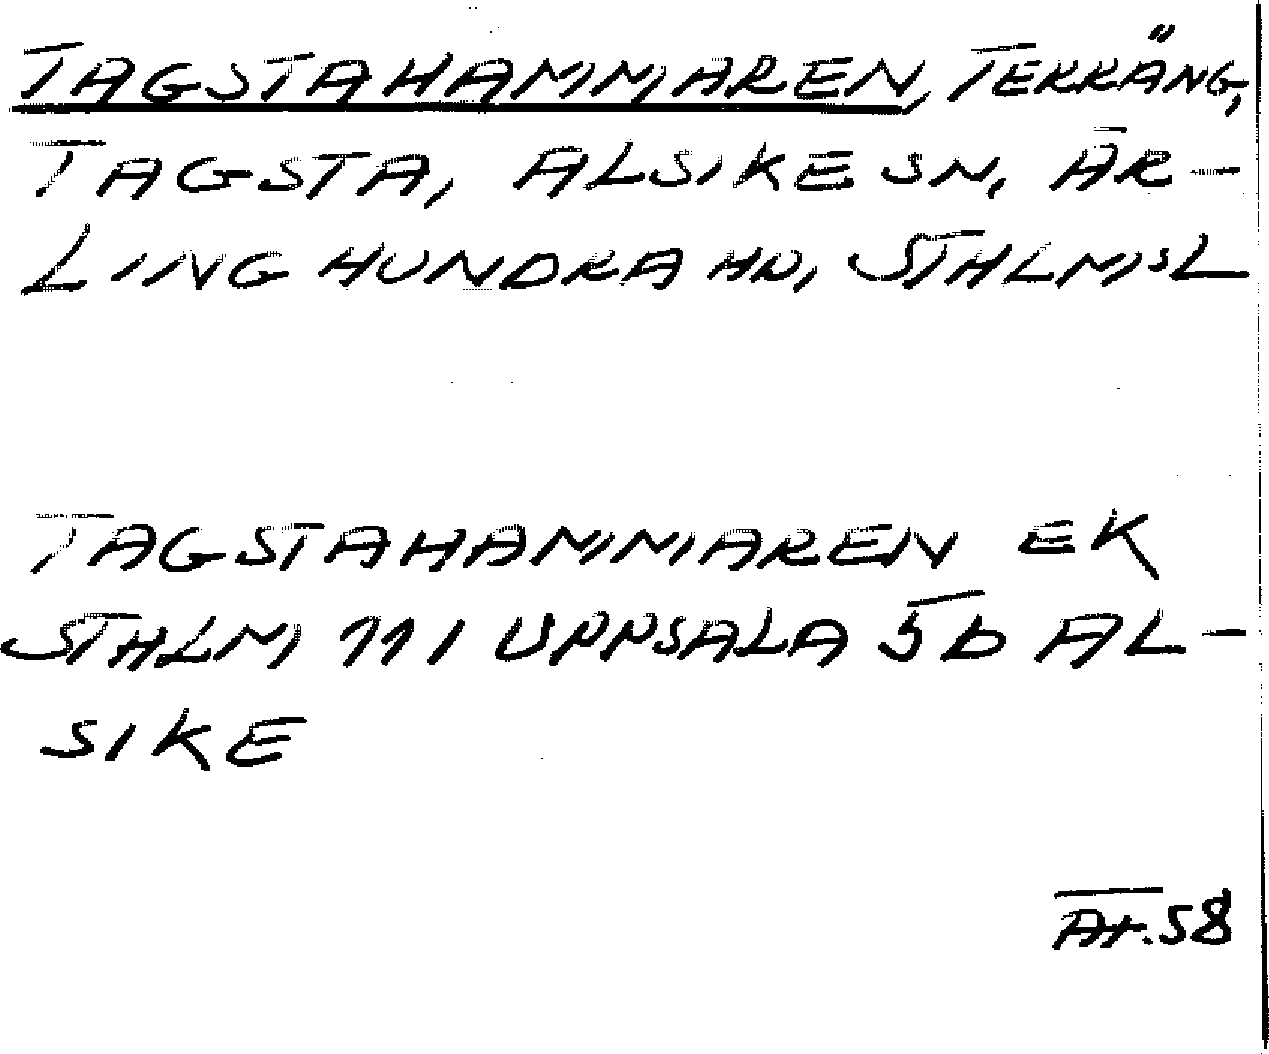 TAGSTAHAMMAREN, TERRÄNG,
TAGSTA, ALSIKE SN, ÄR-
LINGHUNDRA HD, STHLMSL
TAGSTAHAMMAREN EK
STHLM 111 UPPSALA 5b AL-
SIKE
58